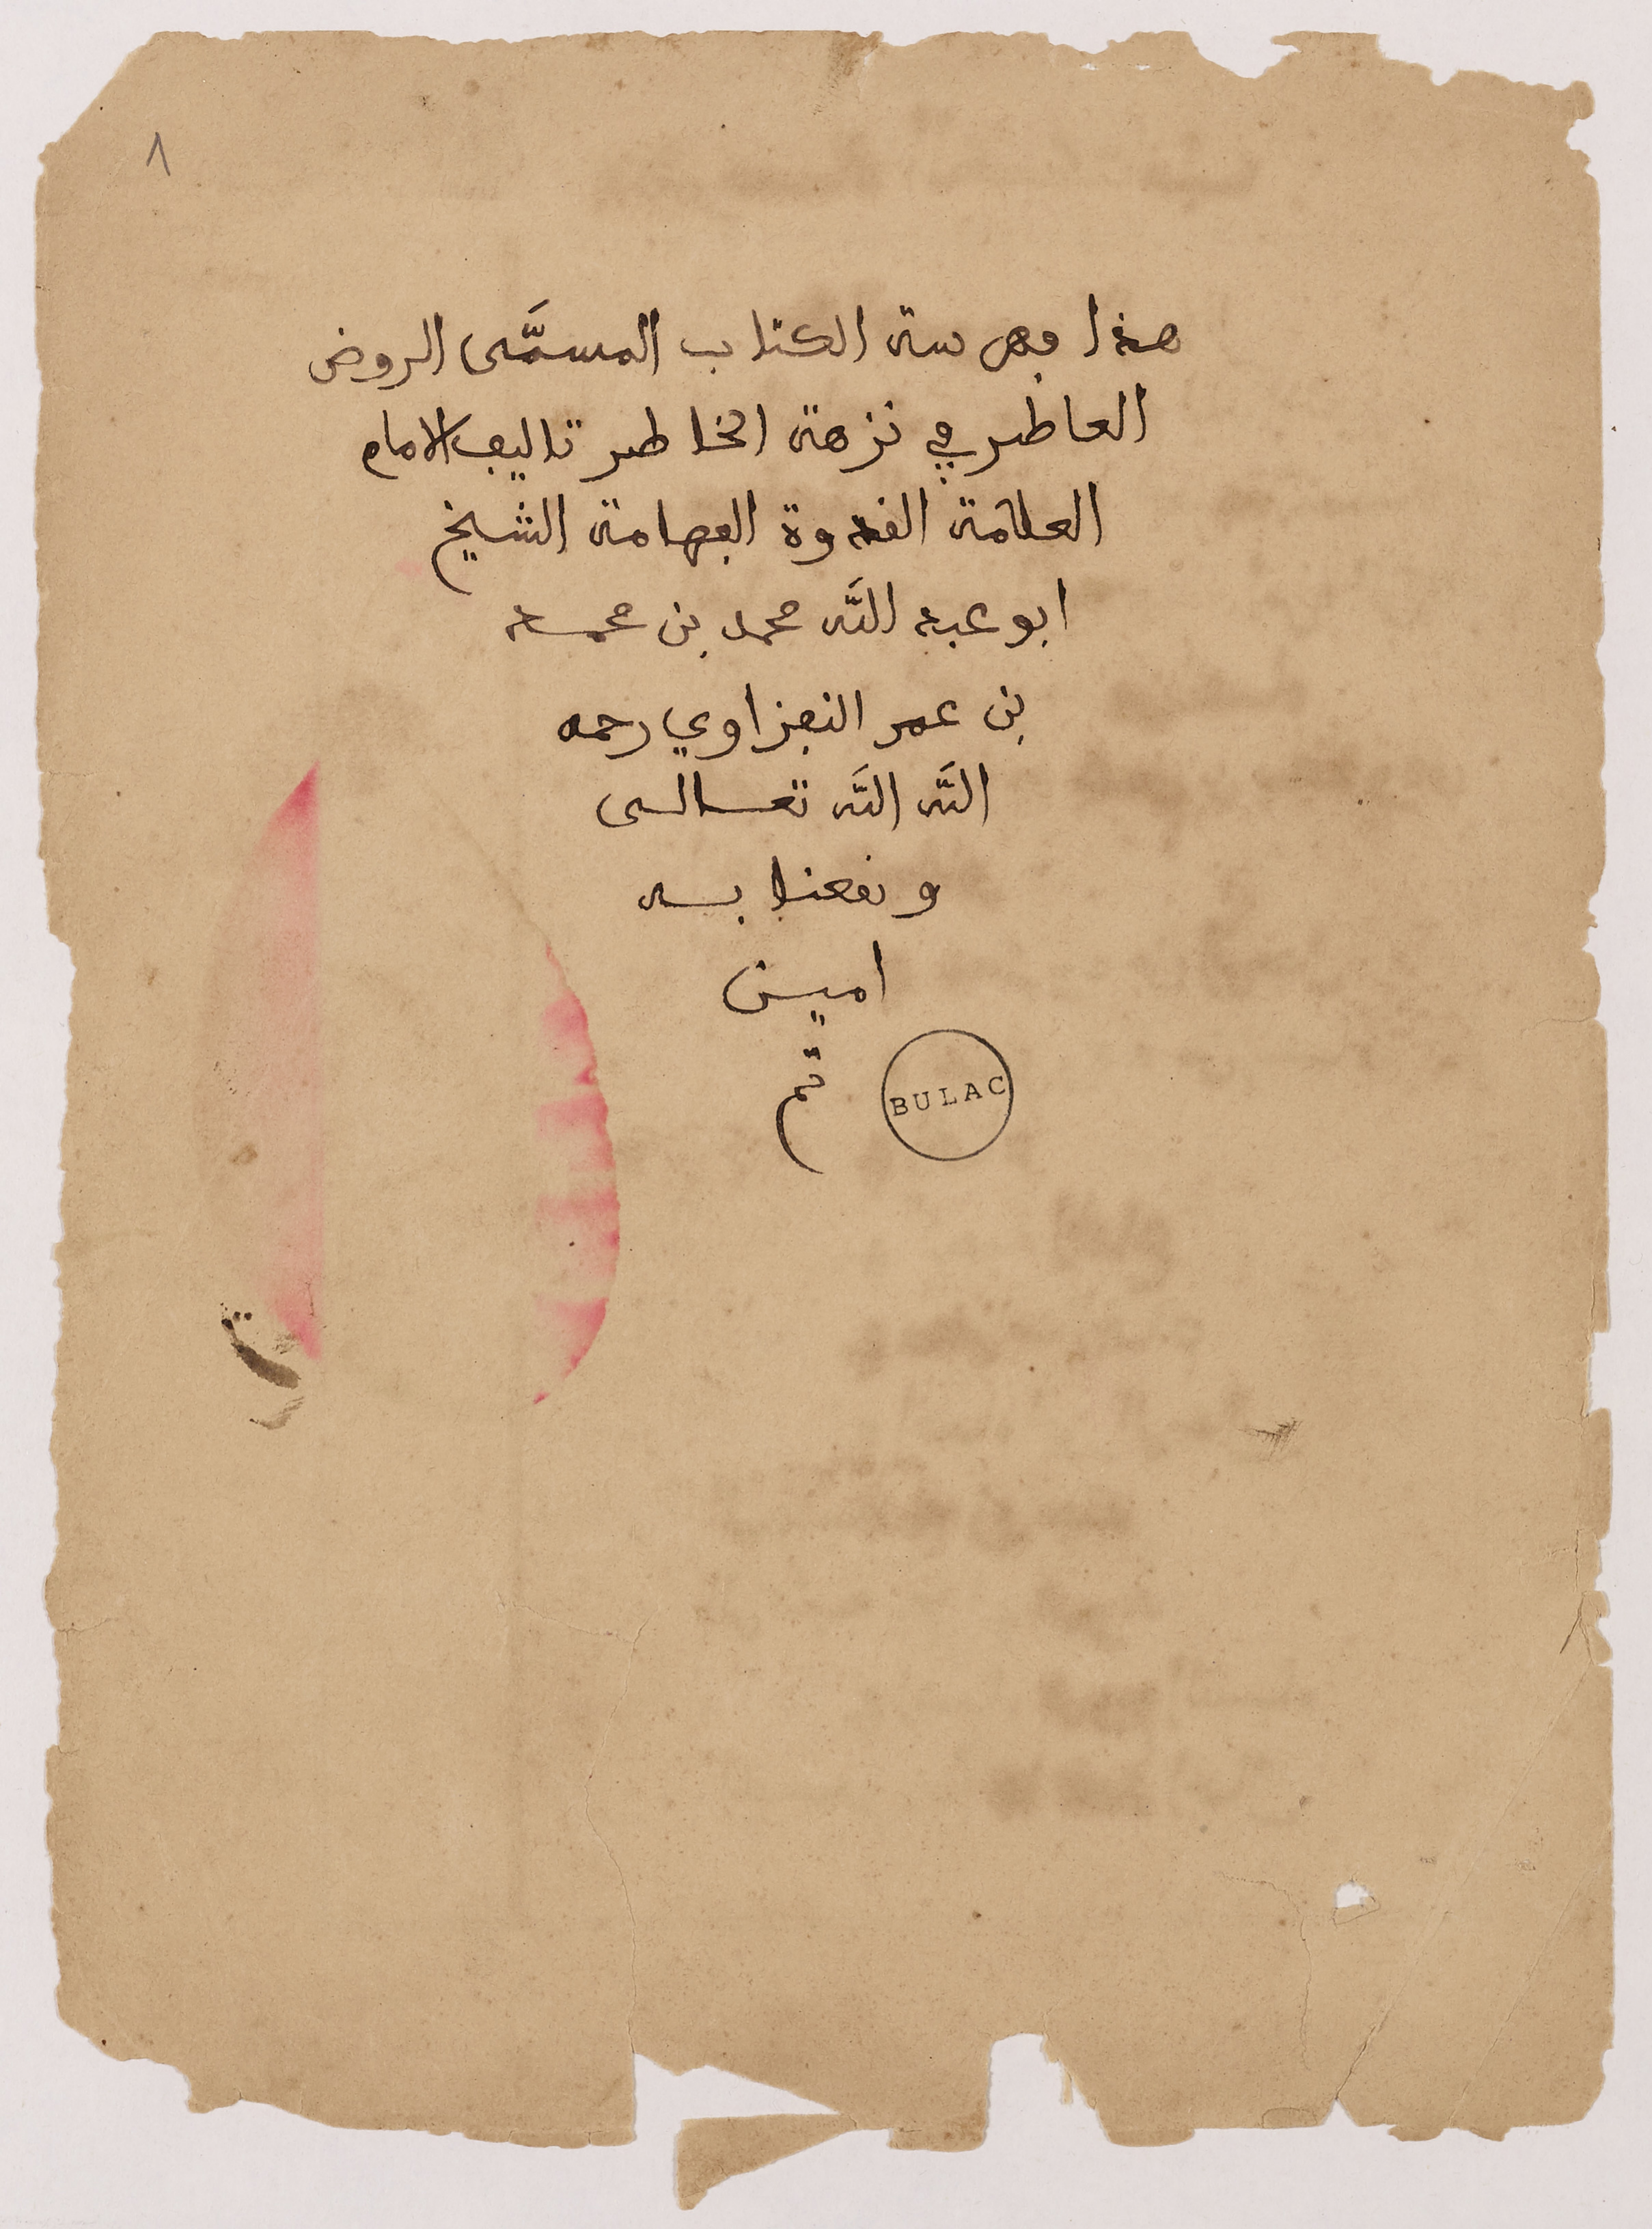 ١
هذا فهرسة الكتاب المسمَّى الروض
العاطر في نزهة الخاطر تاليف الامام
العلامة القدوة الفهامة الشيخ
ابو عبد اللَّه محمد بن محمد
بن عمر النفزاوي رحمه
اللَّه اللَّه تعالى
ونفعنا به
امين
تم
BULAC